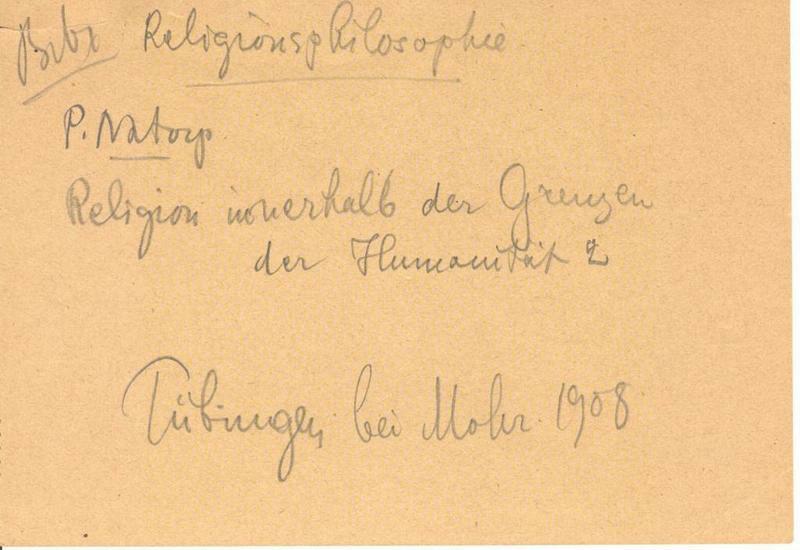 Religionsphilosophie
P. Natorp
Religion innerhalb der Grenzen
der Humanität 2
Tübingen bei Mohr 1908